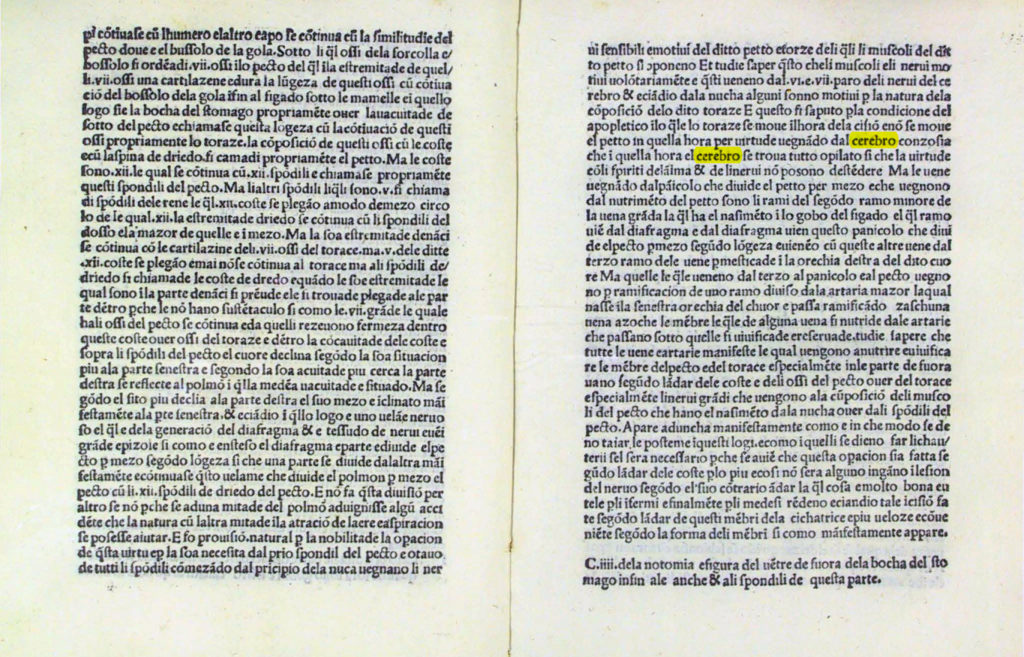 pı cõtiuase cũ lhumero elaltro capo se cõtinua cũ la similitudie del
pecto doue e el bussolo de la gola. Sotto li q̃l ossi dela forcolla e/
bossolo si ordeã di.vii.ossi ilo pecto del q̃l ila estremitade de quel/
li.vii.ossi una cartilazene edura la lũgeza de questi ossi cũ cõtinua
ciõ del bossolo dela gola ĩfin al figado sotto le mamelle ci quello
logo sie la bocha del stomago propriamẽte ouer lauacuitade de
sotto del pecto echiamase questa lõgeza cũ la cõtiuaciõ de questi
ossi propriamente lo toraze.la cõposiciõ de questi ossi cũ le coste
ecũ laspina de driedo.si camadi propriamẽte el petto.Ma le coste
sono.xii.le qual se cõtinua cũ.xii.spõdili e chiamase propriamẽte
questi spõdili del pecto.Ma lialtri spõdili liq̃li sono.v.si chiama
di spõdili dele rene le q̃l.xii.coste se plegão amodo demezo circo
lo de le qual.xii.la estremitade driedo se cõtinua cũ li spondili del
dosso ela mazor de quelle e i mezo.Ma la soa estremitade denãci
se cõtinua cõ le cartilazine deli.vii.ossi del torace.ma.v.dele ditte
.xii.coste se plegão emai nõse cõtinua al torace ma ali spõdili de/
driedo si chiamade le coste de dredo equãdo le soe estremitade le
qual sono ila parte denãci si prẽude ele si trouade plegade ale par
te dẽtro pche le nõ hano sustẽtaculo si como le.vii.grãde le quale
hali ossi del pecto se cõtinua eda quelli rezeuono fermeza dentro
queste coste ouer ossi del toraze e dẽtro la cõcauitade dele coste e
sopra li spõdili del pecto el cuore declina segõdo la soa situacion
piu ala parte senestra e segondo la soa acuitade piu cerca la parte
destra se reflecte al polmõ i q̃lla medẽa uacuitade e situado.Ma se
gõdo el sito piu declia ala parte destra el suo mezo e iclinato mãi
festamẽte ala pte senestra,& eciãdio i q̃llo logo e uno uelãe neruo
so el q̃l e dela generaciõ del diafragma & e tessudo de nerui euẽi
grãde epizole si como e ensteso el diafragma eparte ediuide elpe
cto p mezo segõdo lõgeza si che una parte se diuide dalaltra mãi
festamẽte ecõtinuase q̃sto uelame che diuide el polmon p mezo el
pecto cũ li.xii.spõdili de driedo del pecto.E nõ fa q̃sta diuisiõ per
altro se nõ pche se aduna mitade del polmõ aduignisse algũ acci
dẽte che la natura cũ laltra mitade ila atraciõ de laere easpiracion
se posesse aiutar.E fo prouisiõ.natural p la nobilitade la opacion
de q̃sta uirtu ep la soa necesita dal prio spondil del pecto e otauo.
de tutti li spõdili comẽzãdo dal pricipio dela nuca uegnano li ner
ui sensibili emotiui del ditto petto eforze deli q̃li li muscoli del dit
to petto si oponeno Et tudie saper q̃sto cheli muscoli eli nerui mo
tiui uolõtariamẽte e q̃sti ueneno dal.vi.e.vii.paro deli nerui del ce
rebro & eciãdio dala nucha alguni sonno motini p la natura dela
cõposiciõ delo dito toraze E questo si saputo pla condicione del
apopletico ilo q̃le lo toraze se moue ilhora dela cisiõ enõ se moue
el petto in quella hora per uirtude uegnãdo dal cerebro conzosia
che i quella hora el cerebro se troua tutto opilato si che la uirtude
cõli spiriti delãlma & de linerui nõ posono destẽdere Ma le uene
uegnãdo dalpãicolo che diuide el petto per mezo eche uegnono
dal nutrimẽto del petto sono li rami del segõdo ramo minore de
la uena grãda la q̃l ha el nasimẽto i lo gobo del figado el q̃l ramo
uiẽ dal diafragma e dal diafragma uien questo panicolo che diui
de elpecto pmezo segũdo lõgeza euienẽo cũ queste altre uene dal
terzo ramo dele uene pmesticade i la orechia destra del dito cuo
re Ma quelle le q̃le ueneno dal terzo al panicolo eal pecto uegno
no p ramificacion de uno ramo diuiso dala artaria mazor laqual
nasse ila senestra orechia del chuor e passa ramificãdo zaschuna
uena azoche le mẽbre le q̃le de alguna uena si nutride dale artarie
che passano sotto quelle si uiuificade ereseruade.tudie sapere che
tutte le uene eartarie manifeste le qual uengono anutrire euiuifica
re le mẽbre delpecto edel torace especialmẽte inle parte de fuora
uano segũdo lãdar dele coste e deli ossi del pecto ouer del torace
especialmẽte linerui grãdi che uengono ala cũposiciõ deli musco
li del pecto che hano el nasimẽto dala nucha ouer dali spõdili del
pecto.Apare aduncha manifestamente como e in che modo se de
no taiar le posteme iquesti logi.ecomo i quelli se dieno far lichau/
terii sel sera necessario pche se auiẽ che questa opacion sia fatta se
gũdo lãdar dele coste plo piu ecosi nõ sera alguno ingãno ilesion
del neruo segõdo el suo cõtrario ãdar la q̃l cosa emolto bona eu
tele pli ifermi efinalmẽte pli medesi rẽdeno eciandio tale icisiõ fa
te segõdo lãdar de questi mẽbri dela cichatrice epiu ueloze ecõue
niẽte segõdo la forma deli mẽbri si como mãifestamente appare.
C.iiii.dela notomia efigura del uẽtre de fuora dela bocha del sto
mago insin ale anche & ali spondili de questa parte.